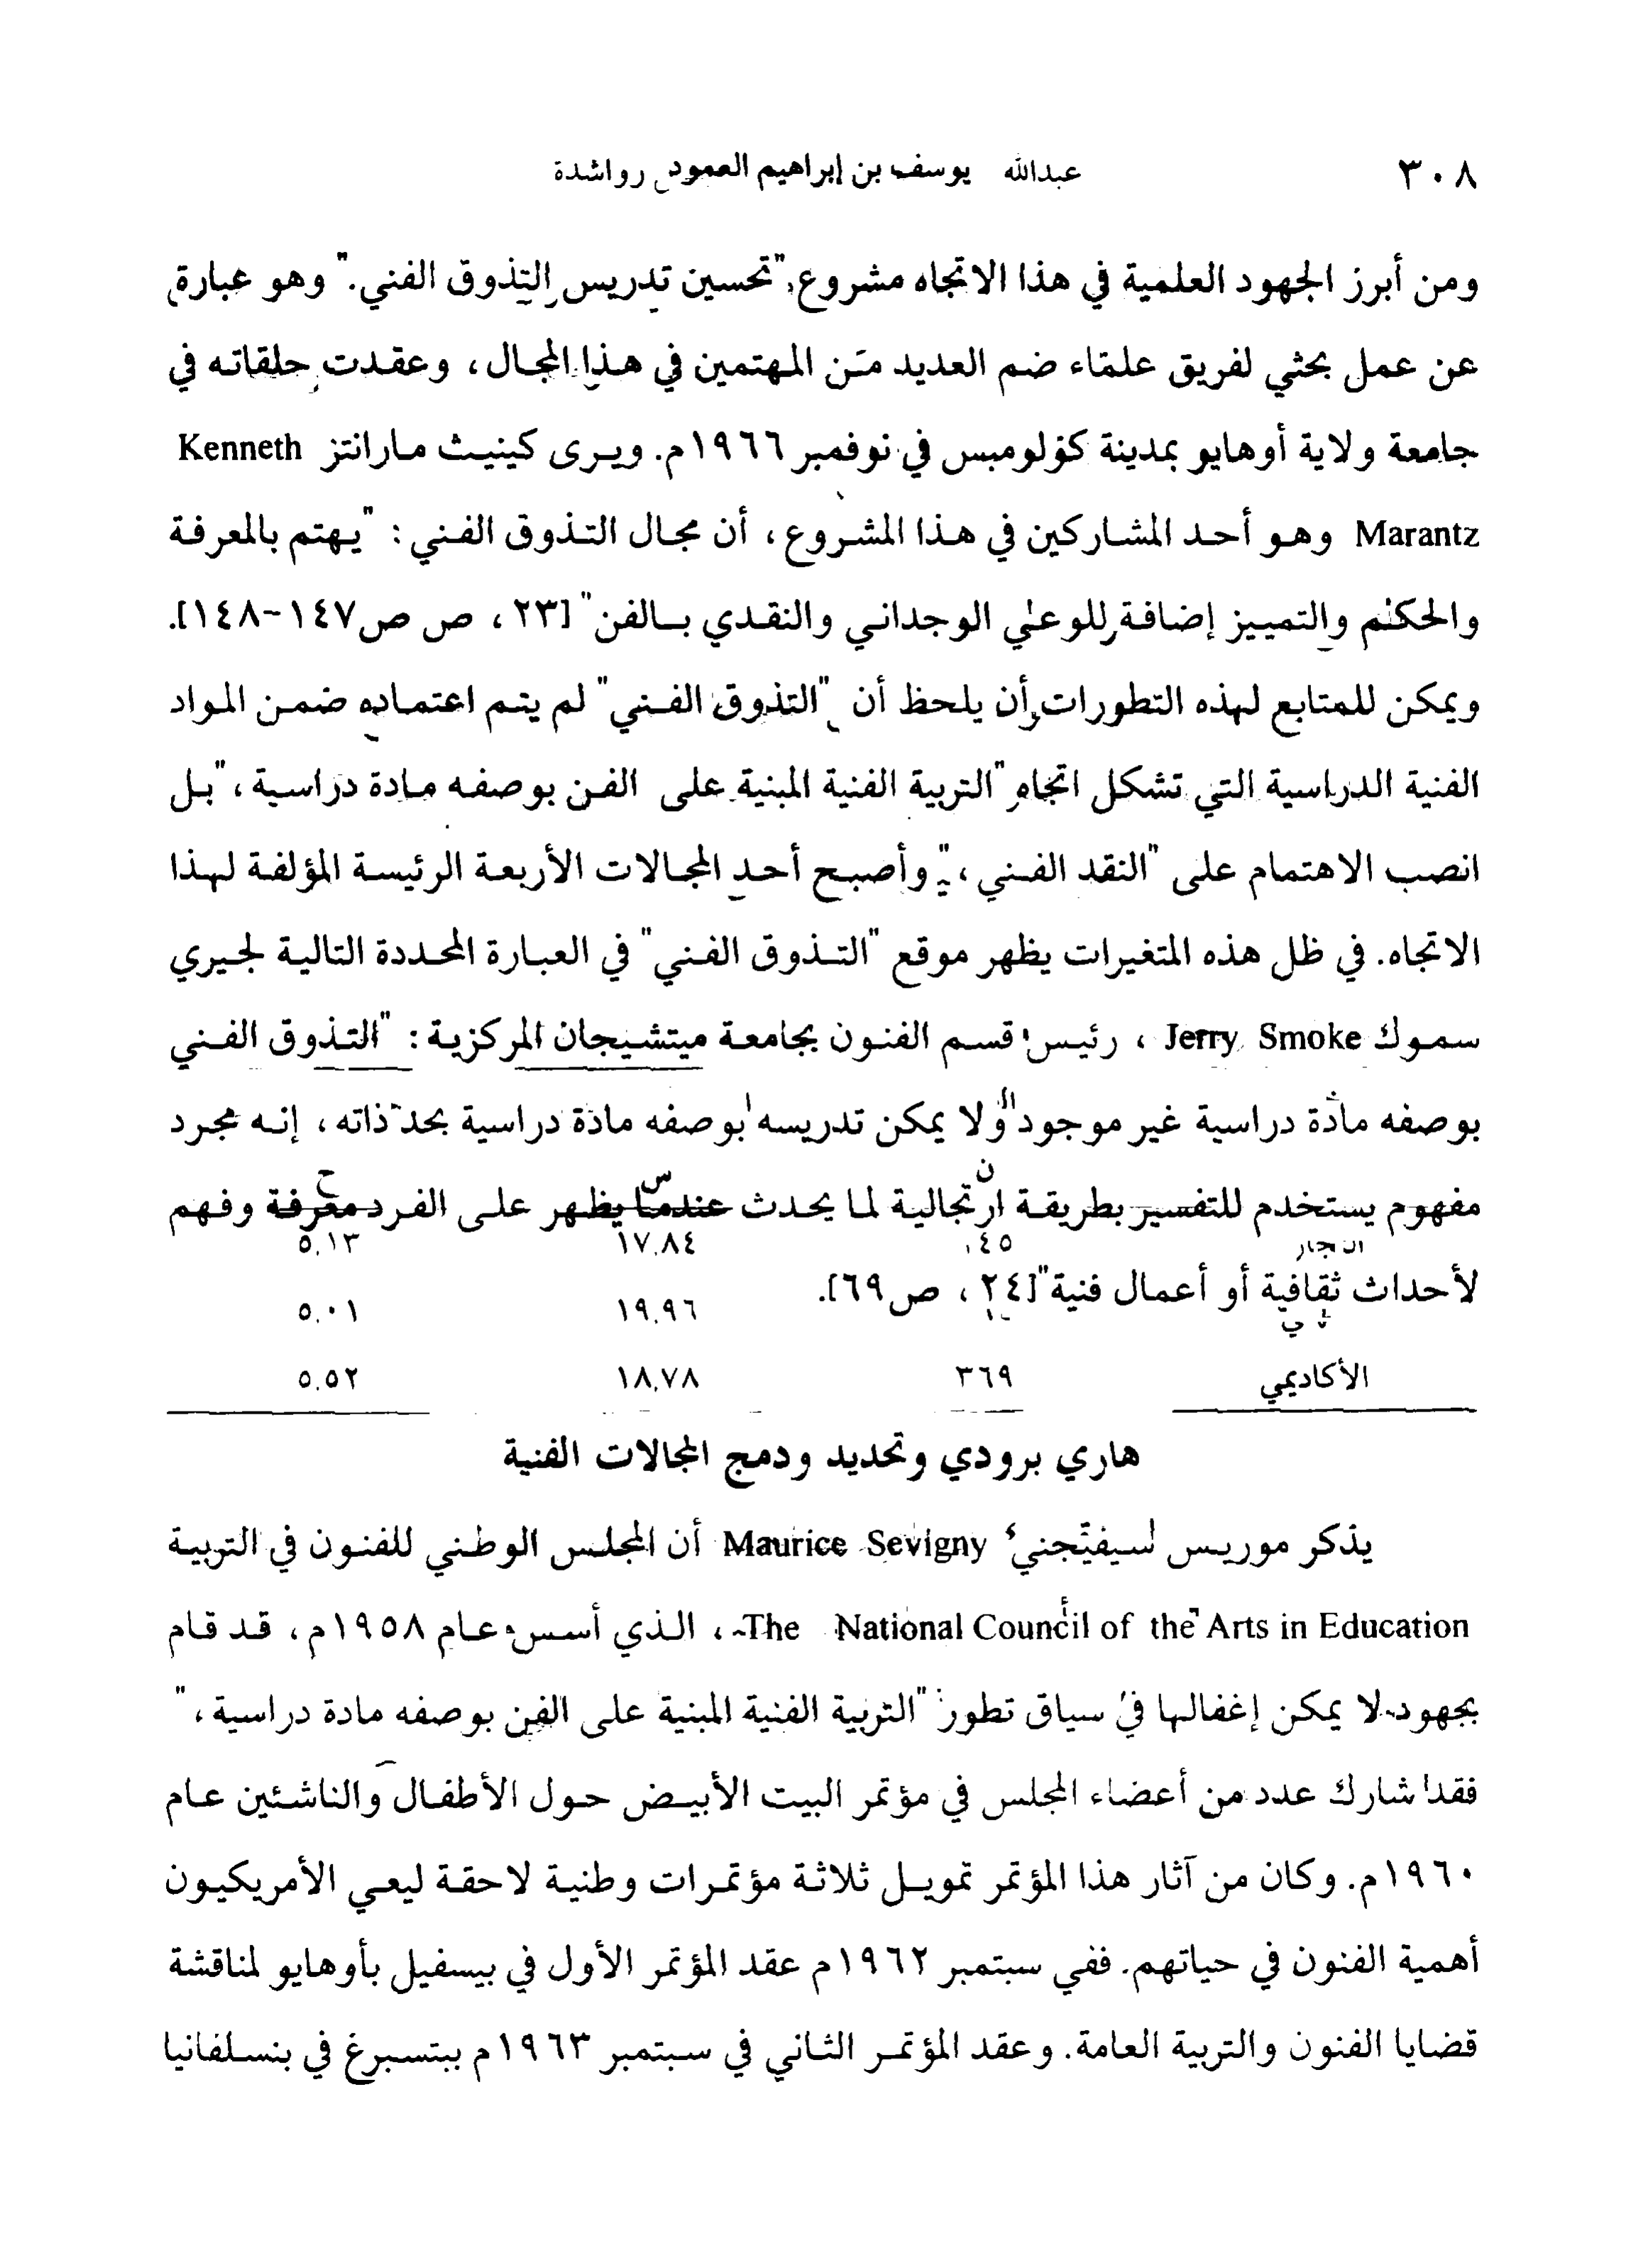 ٣٠٨ عبدالله يوسف بن إبراهيم العمود رواشدة
ومن أبرز الجهود العلمية في هذا الاتجاه مشروع "تحسين تدريس التذوق الفني." وهو عبارة
عن عمل بحثي لفريق علماء ضم العديد من المهتمين في هذا المجال، وعقدت حلقاته في
جامعة ولاية أوهايو بمدينة كولومبس في نوفمبر ١٩٦٦م. ويرى كينيث مارانتز Kenneth
Marantz وهو أحد المشاركين في هذا المشروع، أن مجال التذوق الفني: "يهتم بالمعرفة
والحكم والتمييز إضافة للوعي الوجداني والنقدي بالفن" [٢٣، ص ص١٤٧-١٤٨].
ويمكن للمتابع لهذه التطورات أن يلحظ أن "التذوق الفني" لم يتم اعتماده ضمن المواد
الفنية الدراسية التي تشكل اتجاه "التربية الفنية المبنية على الفن بوصفه مادة دراسية،" بل
انصب الاهتمام على "النقد الفني،" وأصبح أحد المجالات الأربعة الرئيسة المؤلفة لهذا
الاتجاه. في ظل هذه المتغيرات يظهر موقع "التذوق الفني" في العبارة المحددة التالية لجيري
سموك Jerry Smoke، رئيس قسم الفنون بجامعة ميتشيجان المركزية: "التذوق الفني
بوصفه مادة دراسية غير موجود ولا يمكن تدريسه بوصفه مادة دراسية بحد ذاته، إنه مجرد
مفهوم يستخدم للتفسير بطريقة ارتجالية لما يحدث عندما يظهر على الفرد معرفة وفهم
١٧.٨٤ ٥.١٣
لأحداث ثقافية أو أعمال فنية" [٢٤، ص٦٩].
١٩.٩٦ ٥.٠١
الأكاديمي ٣٦٩ ١٨.٧٨ ٥.٥٢
هاري برودي وتحديد ودمج المجالات الفنية
يذكر موريس سيفيجني Maurice Sevigny أن المجلس الوطني للفنون في التربية
The National Council of the Arts in Education، الذي أسس عام ١٩٥٨م، قد قام
بجهود لا يمكن إغفالها في سياق تطور "التربية الفنية المبنية على الفن بوصفه مادة دراسية،"
فقد شارك عدد من أعضاء المجلس في مؤتمر البيت الأبيض حول الأطفال والناشئين عام
١٩٦٠م. وكان من آثار هذا المؤتمر تمويل ثلاثة مؤتمرات وطنية لاحقة ليعي الأمريكيون
أهمية الفنون في حياتهم. ففي سبتمبر ١٩٦٢م عقد المؤتمر الأول في بيسفيل بأوهايو لمناقشة
قضايا الفنون والتربية العامة. وعقد المؤتمر الثاني في سبتمبر ١٩٦٣م ببتسبرغ في بنسلفانيا